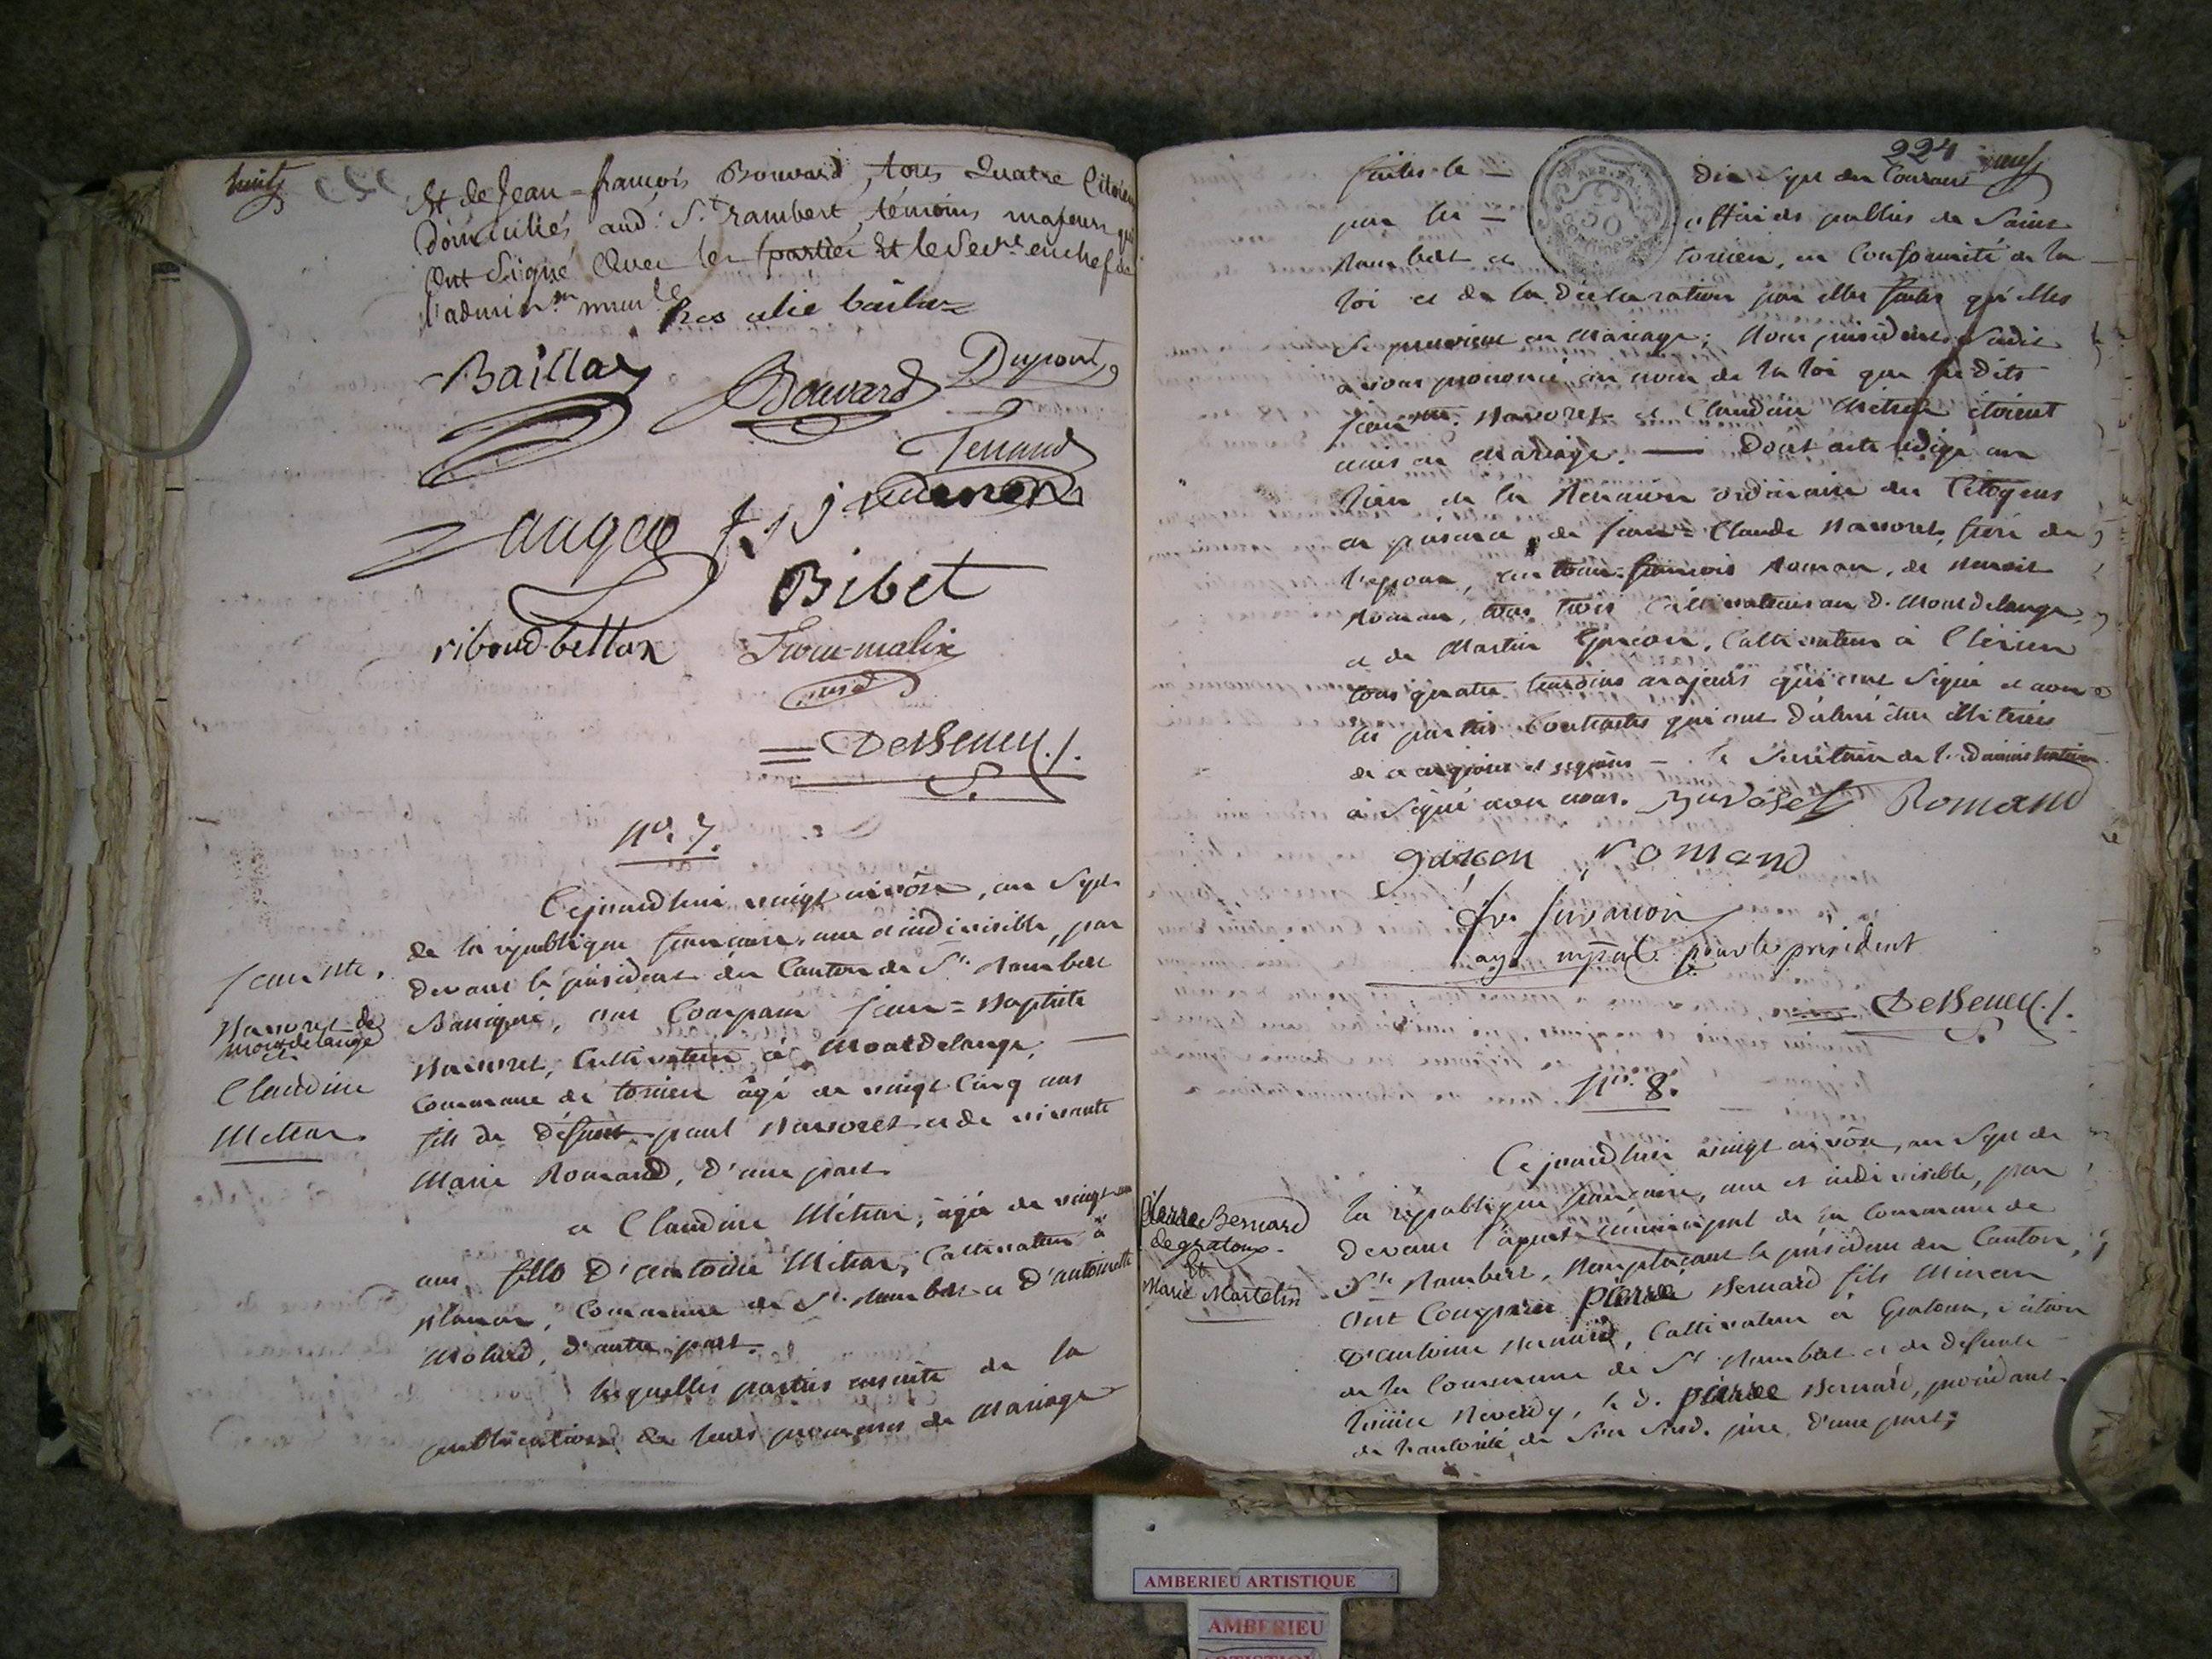 huit
Et de Jean=françois Bouvard, tous quatre Citoiens
domiciliés aud. St rambert, témoins majeurs qui
Ont Signé Avec les parties Et le Secre. en chef de
l'admin.on mun.le Ros alie bailla
Baillat
Bouvard
Dupont
Tenand
auger
Bibet
riboud-bellon
DesSeney./.
No. 7.
Cejourd'hui vingt nivôse, an Sept
de la république francaise, une et indivisible, par
devant le président du Canton de St. Rambert
Soussigné, ont Comparu Jean=Baptiste
Navoret, Cultivateur à Montdelange,
Commune de torcieu âgé de vingt Cinq ans
fils de défunt paul Navoret et de vivante
Marie Romand, d'une part
Jean Bte.
Navoret de
Montdelange
et
Claudine
Métran
et Claudine Métran, âgée de vingt
ans, fille d'antoine Métran, Cultivateur à
Commune de St. Rambert et d'antoinette
Molard, d'autre part.
lesquelles parties ensuite de la
publication de leurs promesses de Mariage
224
neuf
faites le dix Sept du Courant
par les officiers publics de Saint
Rambert et torcieu, en Conformité de la
loi et de la déclaration par elles faites qu'elles
se prenoient en Mariage; Nous président Susdit
avons prononcé au nom de la loi que lesdits
Jean Bte. Navoret et Claudine Métran étoient
unis en Mariage. Dont acte rédigé au
lieu de la Réunion ordinaire des Citoyens
en présence de Jean=Claude Navoret, frère de
l'époux, antoine-françois Roman, de benoit
Roman, tous trois Cultivateurs au d. Montdelange,
et de Martin Garcon, Cultivateur à
tous quatre temoins majeurs qui ont Signé et non
les parties Contractantes qui ont déclaré être illiterées
de ce enquises et requises - le Secrétaire de l'administration
a Signé avec nous. Navoset Romand
garcon romand
agt mpal pour le président
DesSeney./.
No. 8.
Cejourd'hui vingt nivôse, an Sept de
la république francaise, une et indivisible, par
devant l'agent municipal de la Commune de
St. Rambert, Remplaçant le président du Canton,
Ont Comparu pierre Bernard fils Mineur
D'antoine Bernard, Cultivateur à Gratoux, Section
de la Commune de St Rambert et de defunte
Reverdy, le d. pierre Bernard, procédant
de l'autorité de Son Susd. père, d'une part;
Pierre Bernard
de gratoux
Et
Marie Martelin
AMBERIEU ARTISTIQUE
AMBERIEU
ARTISTIQUE